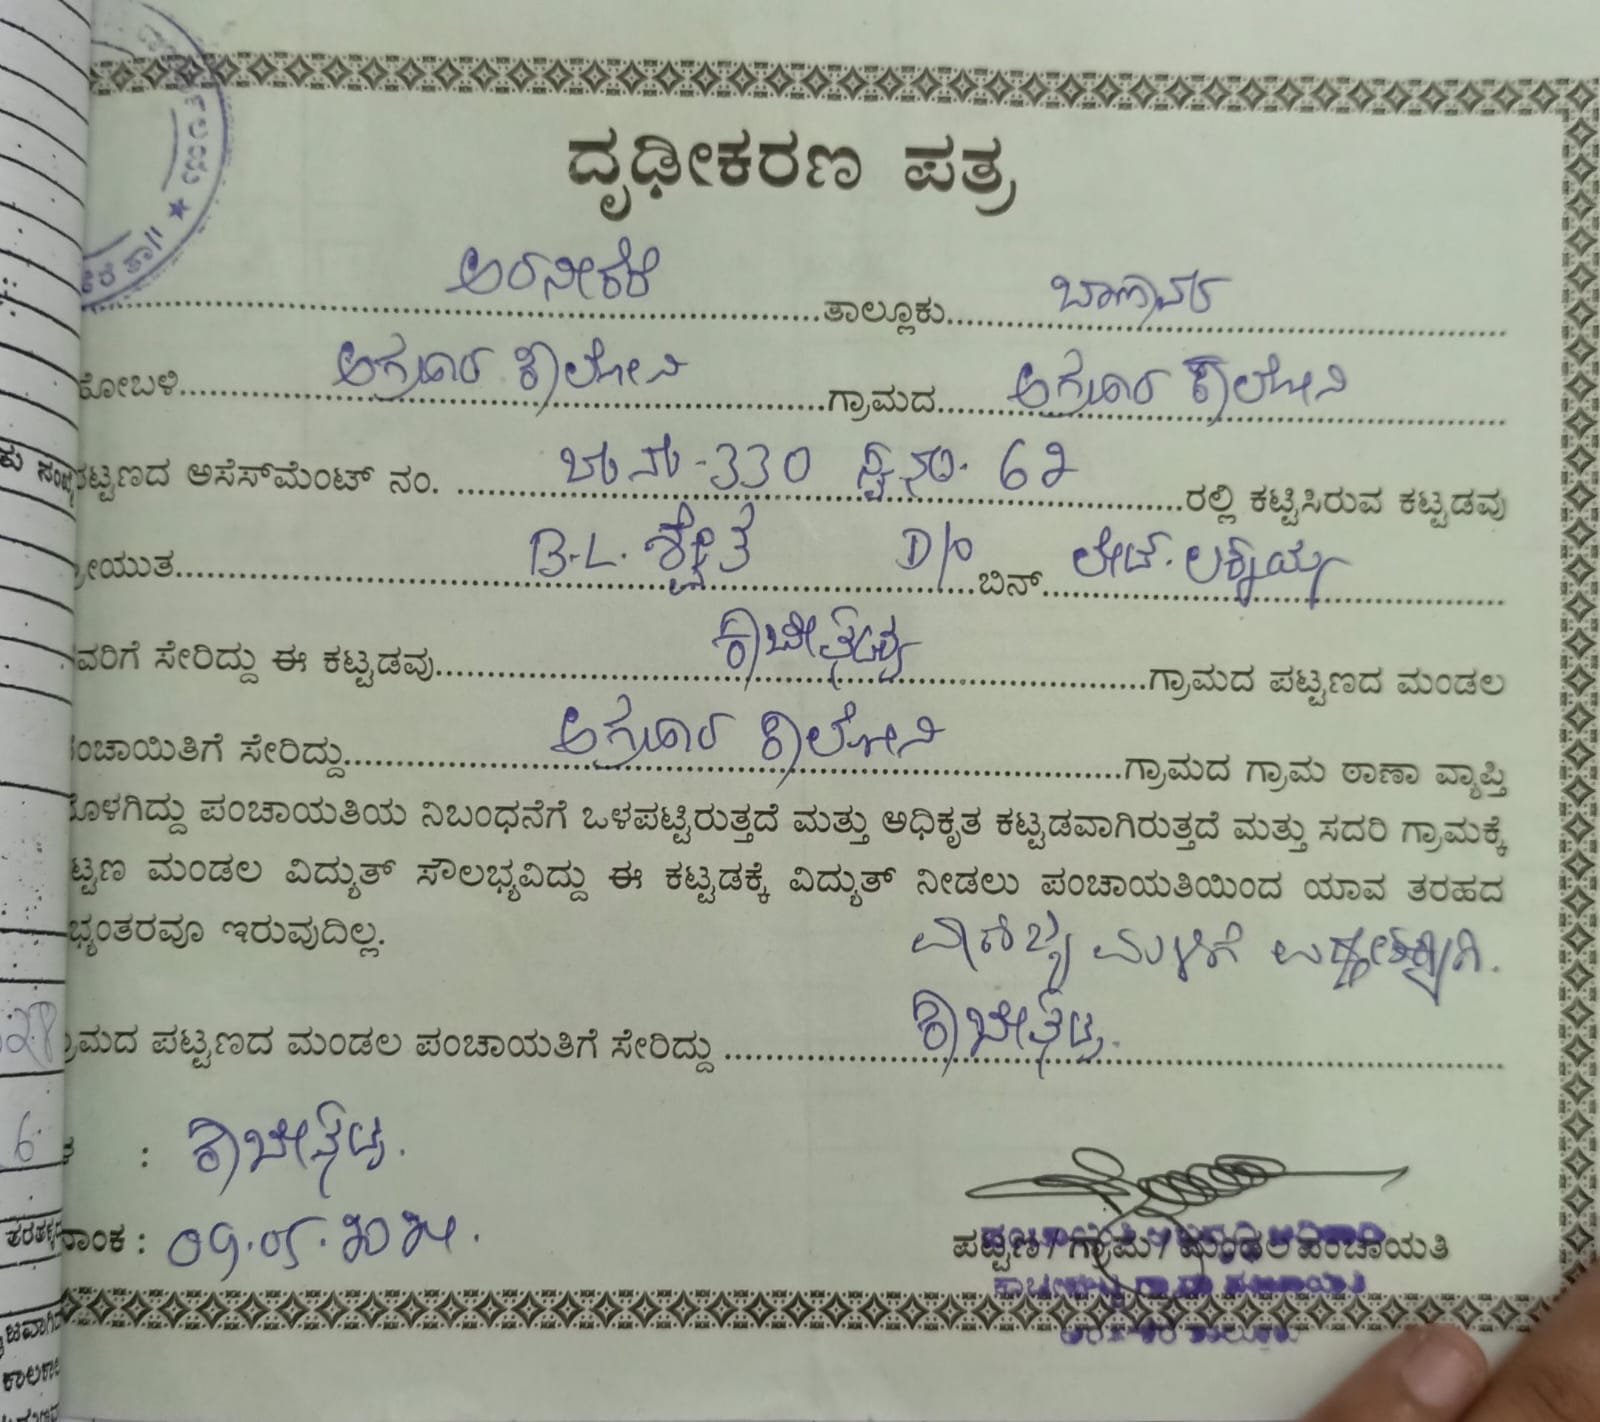 ದೃಢೀಕರಣ ಪತ್ರ
ಅರಸೀಕೆರೆ ತಾಲ್ಲೂಕು ಬಾಣಾವರ
ಕೋಬಳಿ ಅಗ್ರಹಾರ ಕಾಲೋನಿ ಗ್ರಾಮದ ಅಗ್ರಹಾರ ಕಾಲೋನಿ
ಪಟ್ಟಣದ ಅಸೆಸ್‌ಮೆಂಟ್ ನಂ. 330 ಸ್ವ ನಂ. 62 ರಲ್ಲಿ ಕಟ್ಟಿಸಿರುವ ಕಟ್ಟಡವು
ಶ್ರೀಯುತ B.L. ಶ್ವೇತ D/o ಬಿನ್ ಲೇಟ್. ಲಕ್ಕಯ್ಯ
ವರಿಗೆ ಸೇರಿದ್ದು ಈ ಕಟ್ಟಡವು ಕಾಚೀಘಟ್ಟ ಗ್ರಾಮದ ಪಟ್ಟಣದ ಮಂಡಲ
ಪಂಚಾಯಿತಿಗೆ ಸೇರಿದ್ದು ಅಗ್ರಹಾರ ಕಾಲೋನಿ ಗ್ರಾಮದ ಗ್ರಾಮ ಠಾಣಾ ವ್ಯಾಪ್ತಿ
ಯೊಳಗಿದ್ದು ಪಂಚಾಯತಿಯ ನಿಬಂಧನೆಗೆ ಒಳಪಟ್ಟಿರುತ್ತದೆ ಮತ್ತು ಅಧಿಕೃತ ಕಟ್ಟಡವಾಗಿರುತ್ತದೆ ಮತ್ತು ಸದರಿ ಗ್ರಾಮಕ್ಕೆ
ಟ್ಟಣ ಮಂಡಲ ವಿದ್ಯುತ್ ಸೌಲಭ್ಯವಿದ್ದು ಈ ಕಟ್ಟಡಕ್ಕೆ ವಿದ್ಯುತ್ ನೀಡಲು ಪಂಚಾಯತಿಯಿಂದ ಯಾವ ತರಹದ
ಭ್ಯಂತರವೂ ಇರುವುದಿಲ್ಲ.
ವಾಣಿಜ್ಯ ಮಳಿಗೆ
ಗ್ರಾಮದ ಪಟ್ಟಣದ ಮಂಡಲ ಪಂಚಾಯತಿಗೆ ಸೇರಿದ್ದು ಕಾಚೀಘಟ್ಟ.
: ಕಾಚೀಘಟ್ಟ.
ನಾಂಕ : 09.05.2024.
ಪಟ್ಟಣ / ಗ್ರಾಮ / ಮಂಡಲ ಪಂಚಾಯತಿ